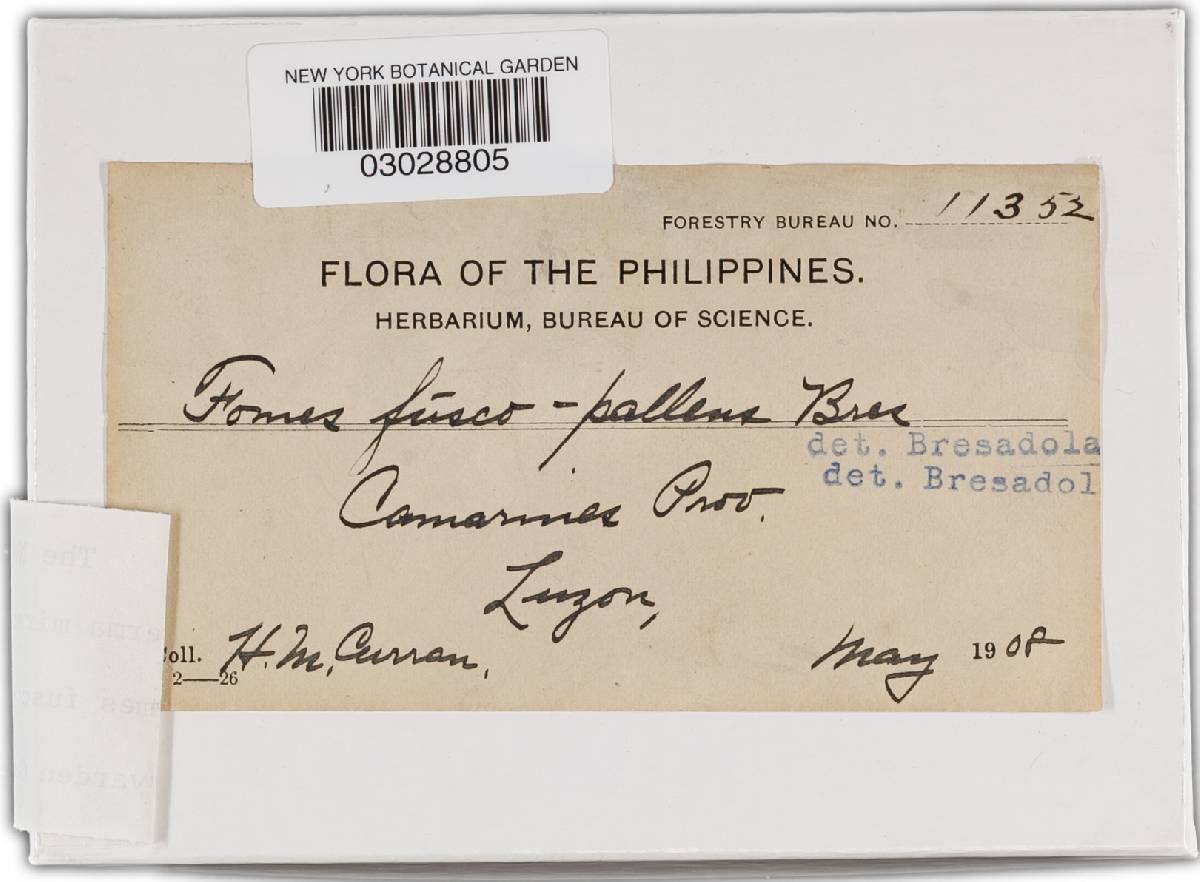 NEW YORK BOTANICAL GARDEN
03028805
FORESTRY BUREAU NO. 11352
FLORA OF THE PHILIPPINES.
HERBARIUM, BUREAU OF SCIENCE.
Fomes fusco-pallens Bres
det. Bresadola
det. Bresadol
Camarines Prov.
Luzon,
oll. H. M. Curran, May 1908
2—26